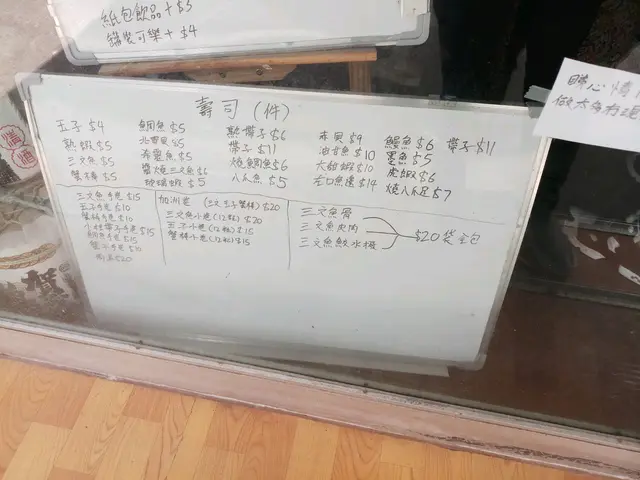 紙包飲品+$3
罐裝可樂+$4
壽司(件)
玉子$4
熟蝦$5
三文魚$5
蟹棒$5
鯛魚$5
北寄貝$5
希靈魚$5
醬燒三文魚$6
玻璃蝦$5
熟帶子$6
帶子$11
燒鯛魚$6
八爪魚$5
赤貝$9
油甘魚$10
大甜蝦$10
左口魚邊$14
鰻魚$6
墨魚$5
虎蝦$6
燒八爪足$7
帶子$11
三文魚手卷$15
玉子手卷$10
蟹棒手卷$10
帶子手卷$15
鰻魚手卷$15
蟹子手卷$10
$20
加洲卷(三文玉子蟹棒)$20
三文魚小卷(12粒)$20
玉子小卷(12粒)$15
蟹棒小卷(12粒)$15
三文魚骨
三文魚皮肉
三文魚鮫水棧
$20袋全包
睇心情
做太多冇